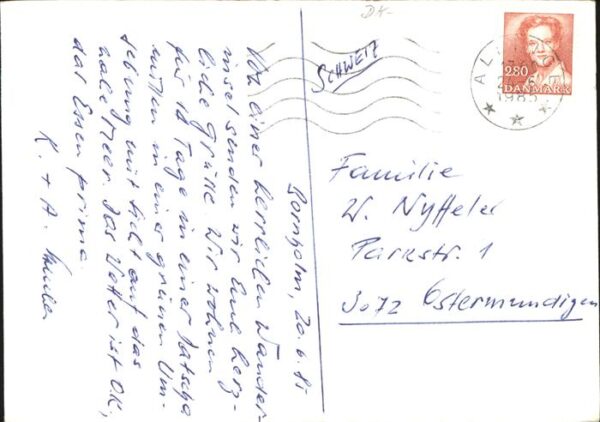 DK-
SCHWEIZ
280
DANMARK
1985
Bornholm, 20.6.85
Von einer herrlichen Wander-
insel senden wir Euch herz-
liche Grüsse. Wir wohnen
für 18 Tage in einer Datscha
mitten in einer grünen Um-
gebung mit Sicht auf das
nahe Meer. Das Wetter ist OK,
das Essen prima.
K. + A.
Familie
W. Nyffeler
Parkstr. 1
3072 Ostermundigen